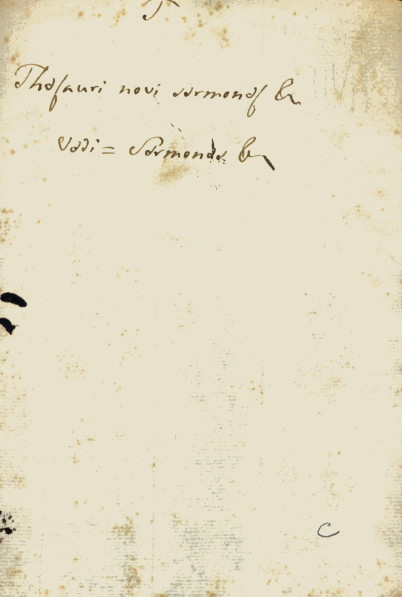 Thesauri novi sermones &c
Vodi = Sermones &c
C